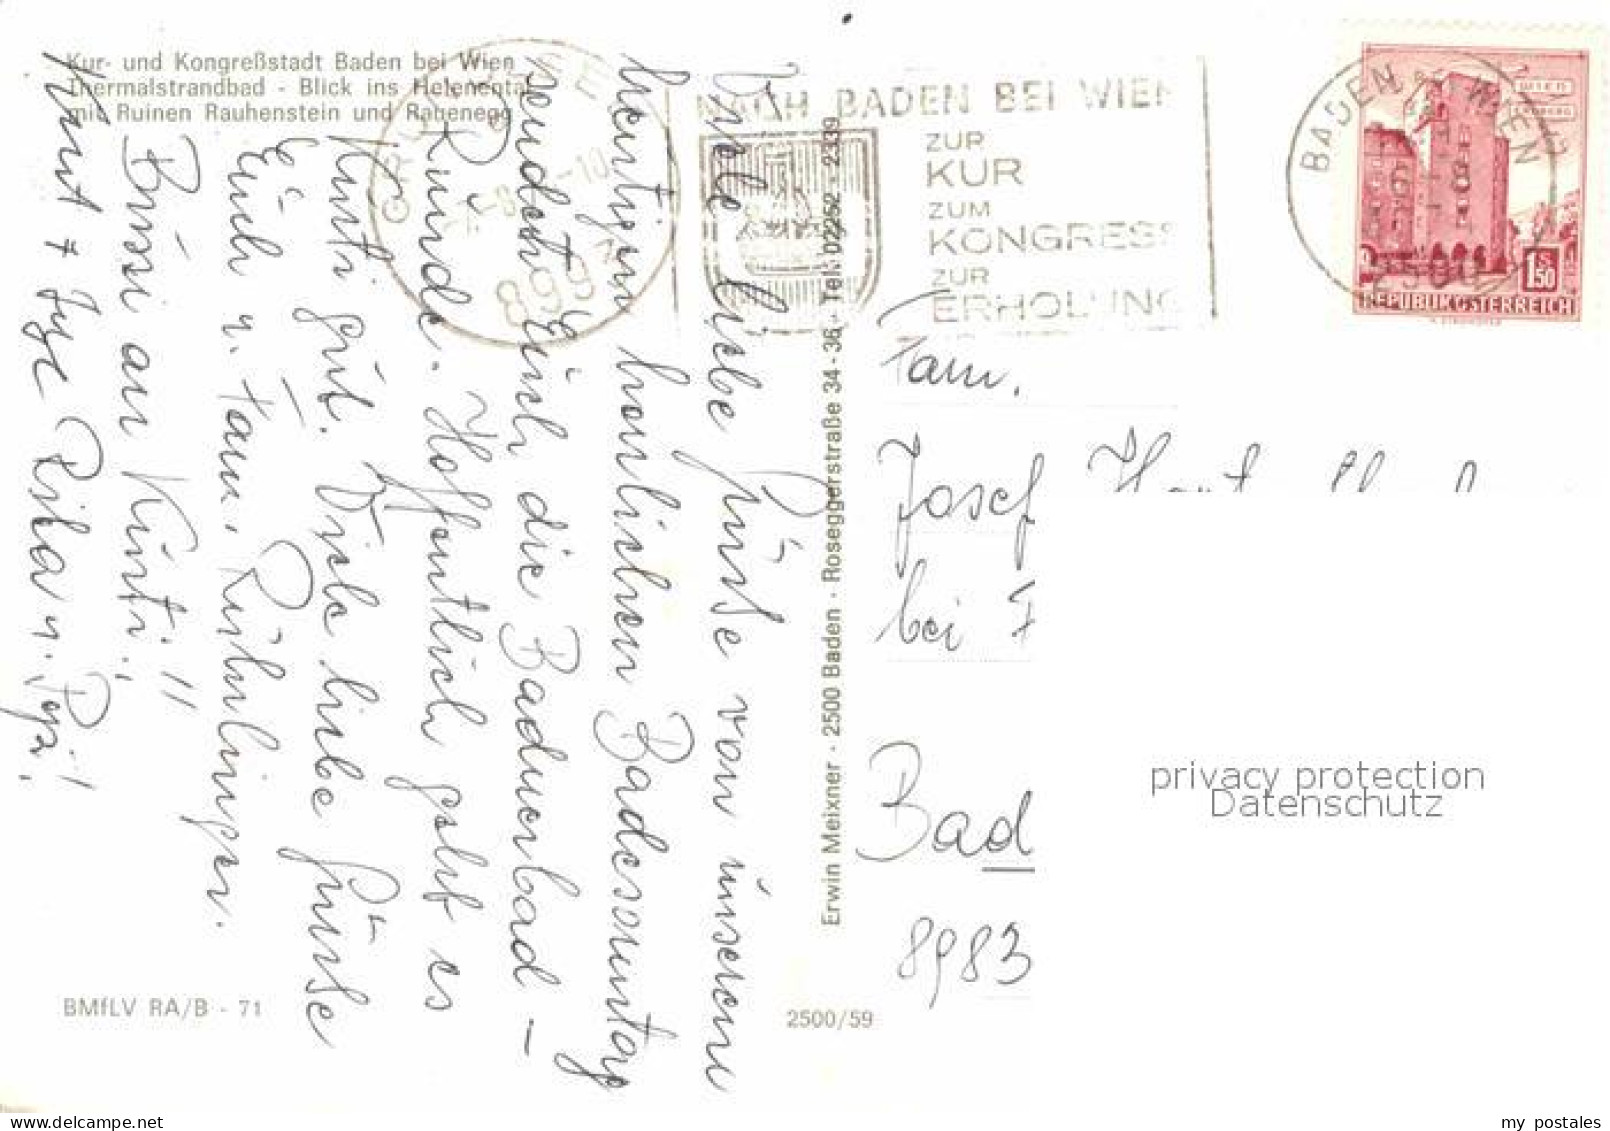 Kur- und Kongreßstadt Baden bei Wien
Thermalstrandbad - Blick ins Helenental
mit Ruinen Rauhenstein und Rabenegg
NACH BADEN BEI WIEN
ZUR
KUR
ZUM
KONGRESS
ZUR
ERHOLUNG
BADEN WIEN
2500
WIEN
1.50
REPUBLIK ÖSTERREICH
Viele liebe Grüße von unserem
heurigen herrlichen Badesonntag
sendet Euch die Badnerbad-
Runde. Hoffentlich geht es
Kurti gut. Viele liebe Grüße
Euch u. Fam. Rühlinger.
Bussi an Kurti!!
Kurt + Inge Risa u. Pepi!
Erwin Meixner · 2500 Baden · Roseggerstraße 34-36 · Tel. 02252 - 2339
Fam.
Josef
bei
Bad
8983
privacy protection
Datenschutz
BMfLV RA/B - 71
2500/59
www.delcampe.net
my_postales